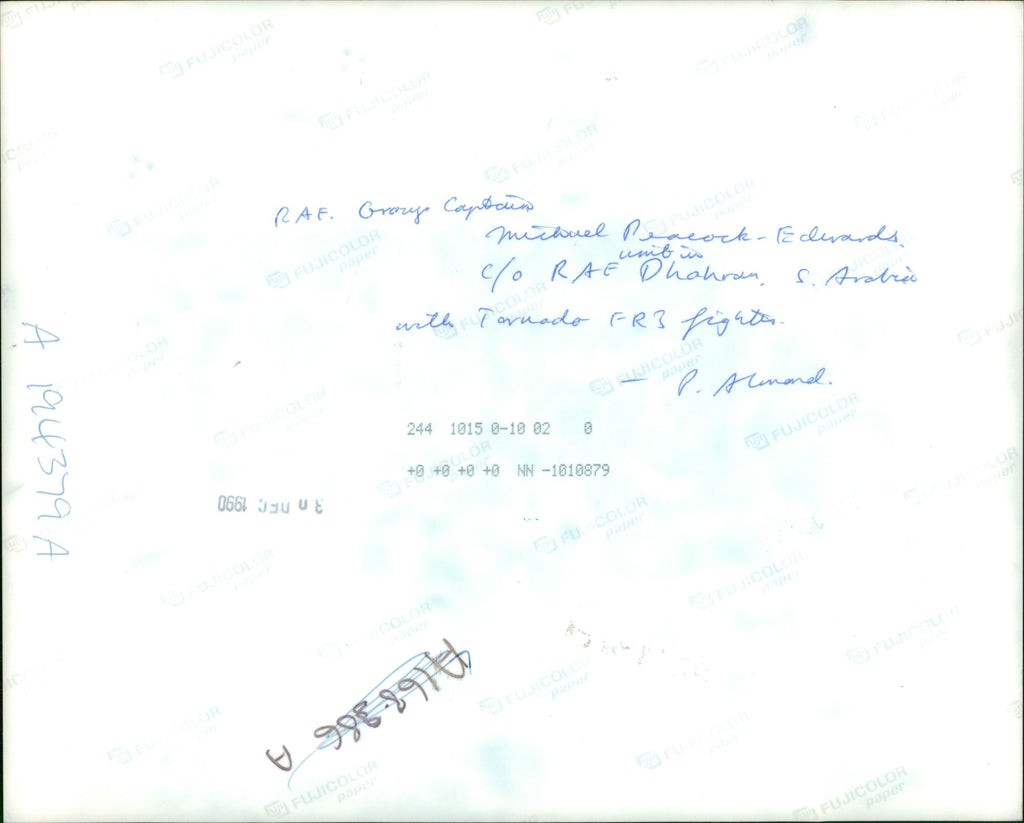 RAF. Group Captain
Michael Peacock-Edwards.
unit in
c/o RAF Dhahran, S. Arabia
with Tornado FR3 fighter.
— P. Almond.
A 194379 A
244 1015 0-10 02 0
+0 +0 +0 +0 NN -1010879
DEC 1990
A168.386 A
FUJICOLOR
paper